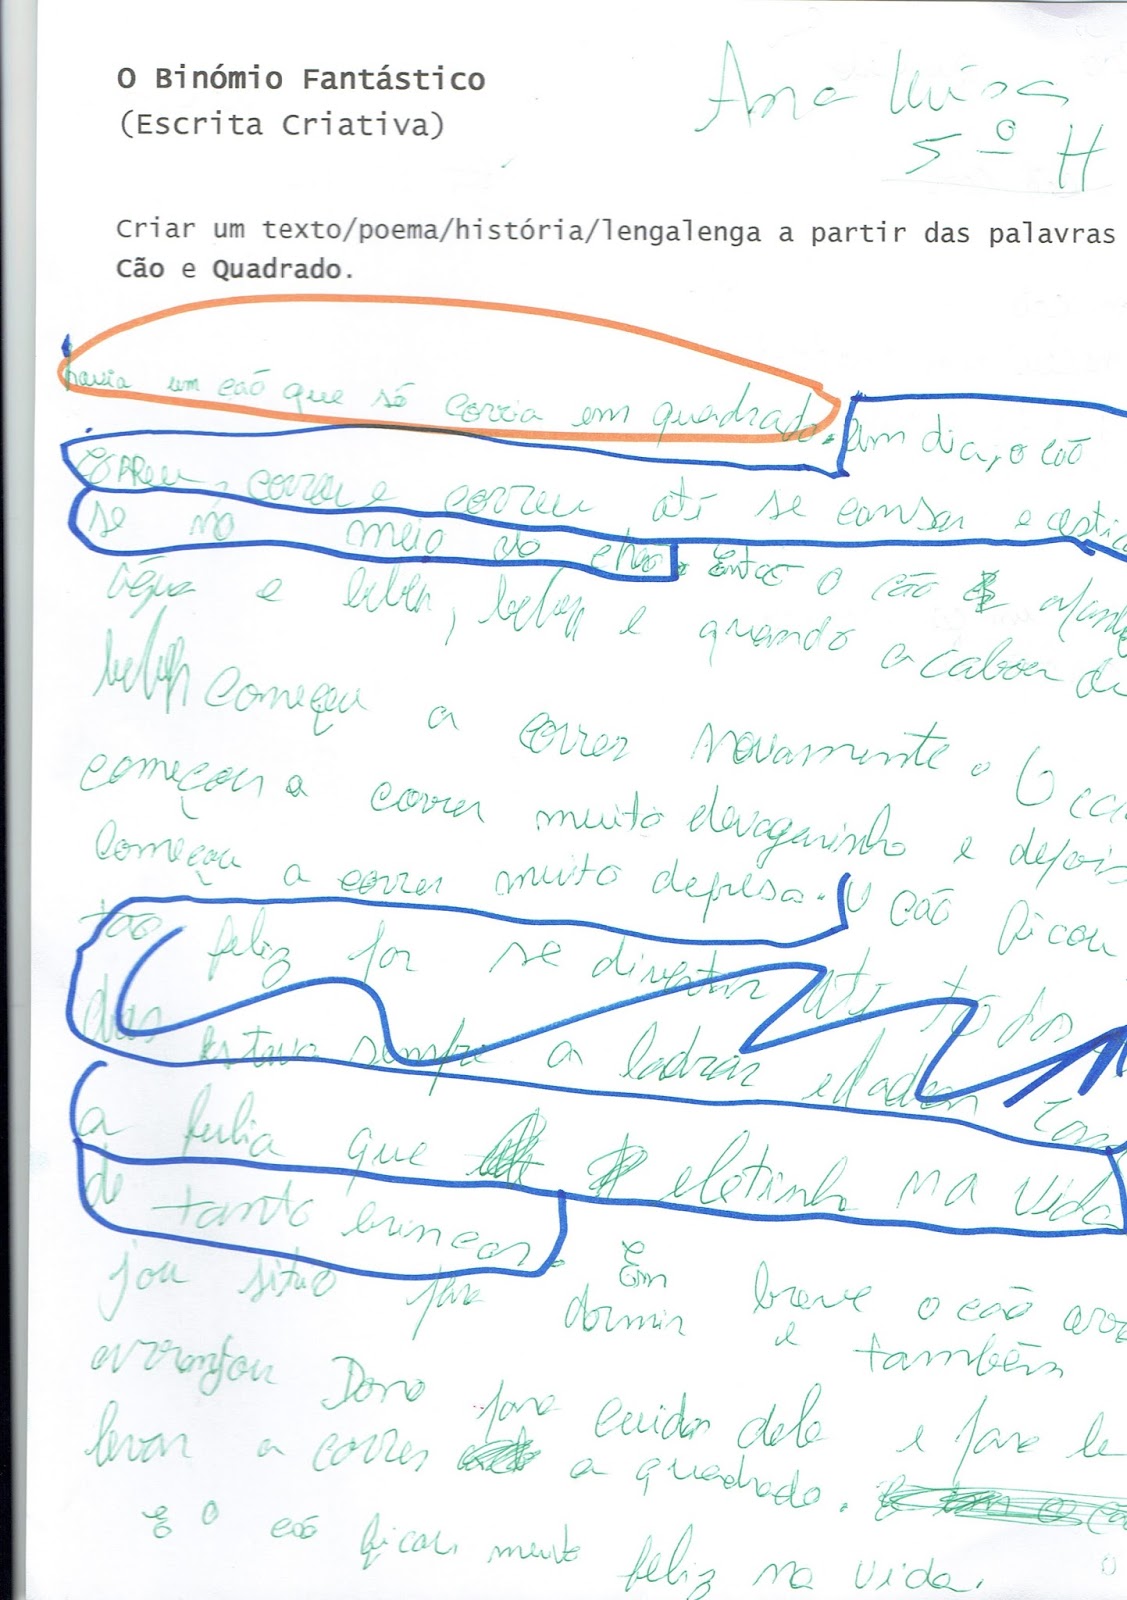 O Binómio Fantástico
(Escrita Criativa)
Ana luísa
5º H
Criar um texto/poema/história/lengalenga a partir das palavras
Cão e Quadrado.
havia um cão que só corria em quadrado. Um dia, o cão
correu, correu e correu até se cansar e estic
se no meio do chão. Então o cão
água e bebeu, bebeu e quando acabou de
beber começou a correr novamente. O
começou a correr muito devagarinho e depois
começou a correr muito depresa. O cão ficou
tão feliz por se divertir até todos
dias estava sempre a ladrar e ladrar
a que na vida
de tanto brincar. Em breve o cão
jou sítio para dormir e também
arranjou Dono para cuidar dele e para le
levar a correr a quadrado.
E o cão ficou muito feliz na vida.